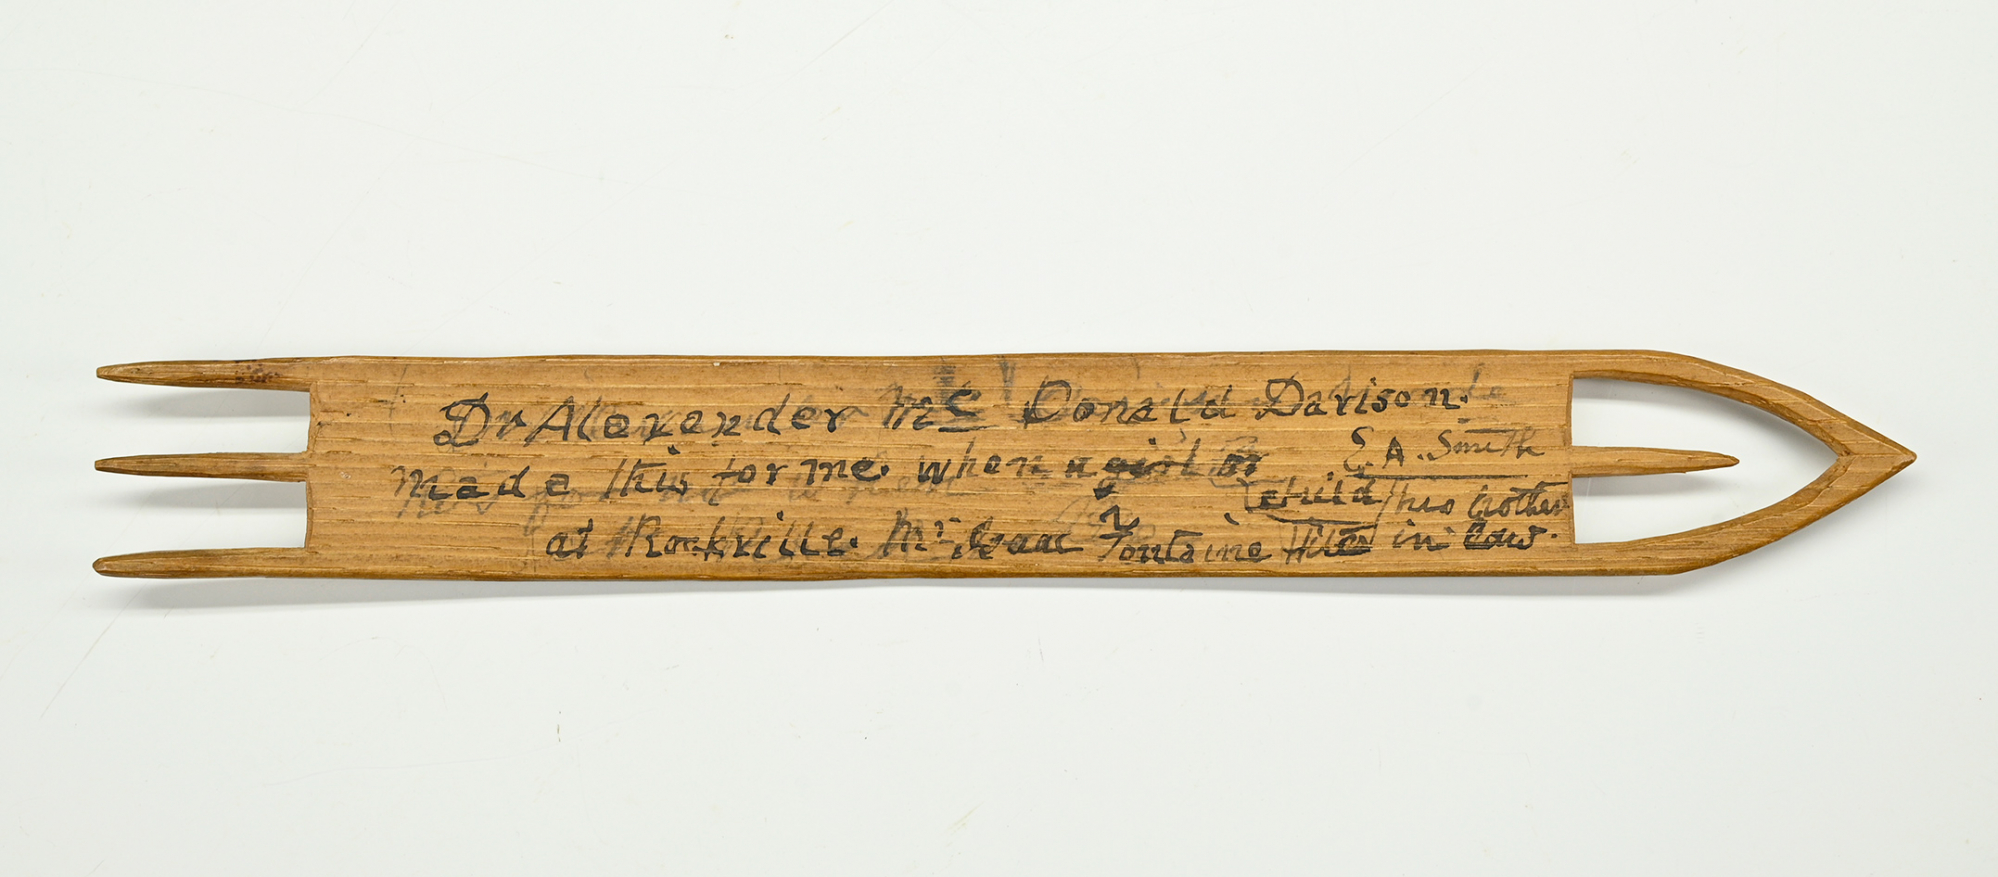 Dr Alexander Mc Donald Davison.
made this for me. when a girl or
E. A. Smith
child his brother
at Rockville. Mr. Isaac Fontaine in Law.